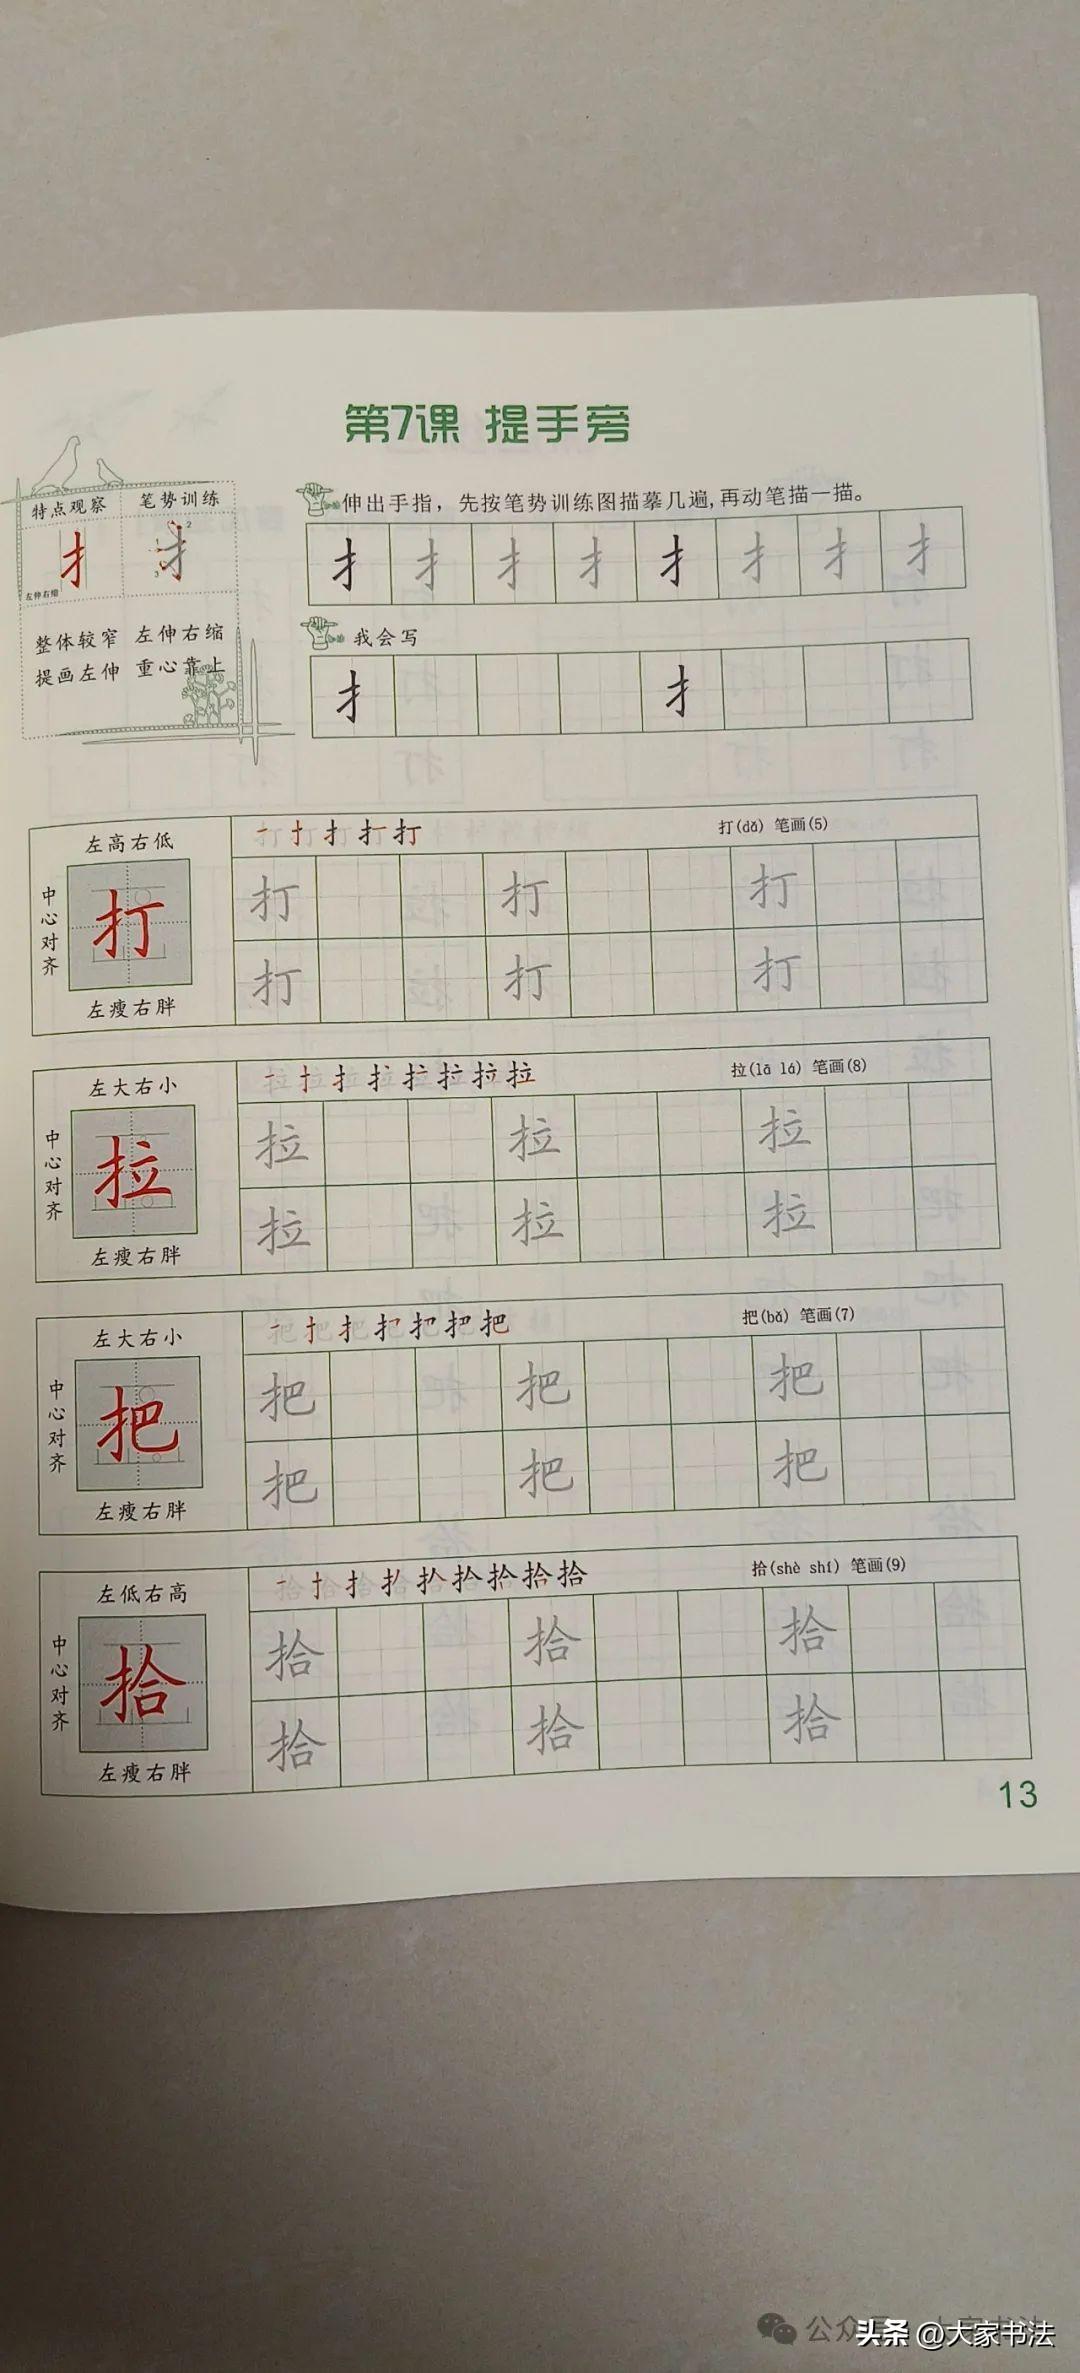 第7课 提手旁
特点观察 笔势训练
扌 扌
2
3
左伸右缩
整体较窄 左伸右缩
提画左伸 重心靠上
伸出手指，先按笔势训练图描摹几遍,再动笔描一描。
扌 扌 扌 扌 扌 扌 扌 扌
我会写
扌 扌
左高右低
中心对齐
打
左瘦右胖
打(dǎ) 笔画(5)
打 打 打
打 打 打
左大右小
中心对齐
拉
左瘦右胖
拉(lā lá) 笔画(8)
拉 拉 拉
拉 拉 拉
左大右小
中心对齐
把
左瘦右胖
把(bǎ) 笔画(7)
把 把 把
把 把 把
左低右高
中心对齐
拾
左瘦右胖
拾(shè shí) 笔画(9)
拾 拾 拾
拾 拾 拾
13
头条 @大家书法